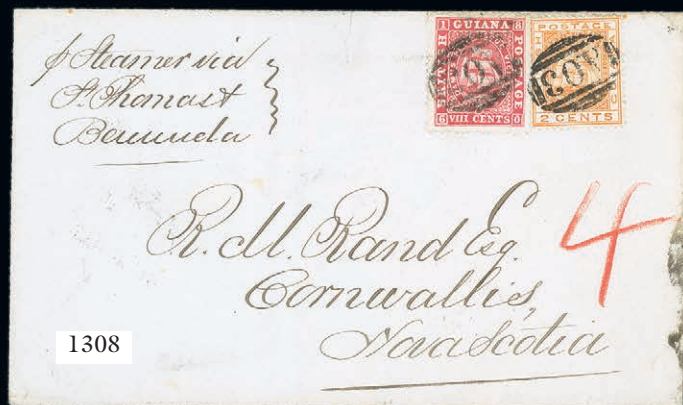 p Steamer via
St. Thomas &
Bermuda
1 GUIANA 8
BRITISH
POSTAGE
6 VIII CENTS 0
POSTAGE
2 CENTS
A03
R. M. Rand Esq.
Cornwallis,
Nova Scotia
4
1308